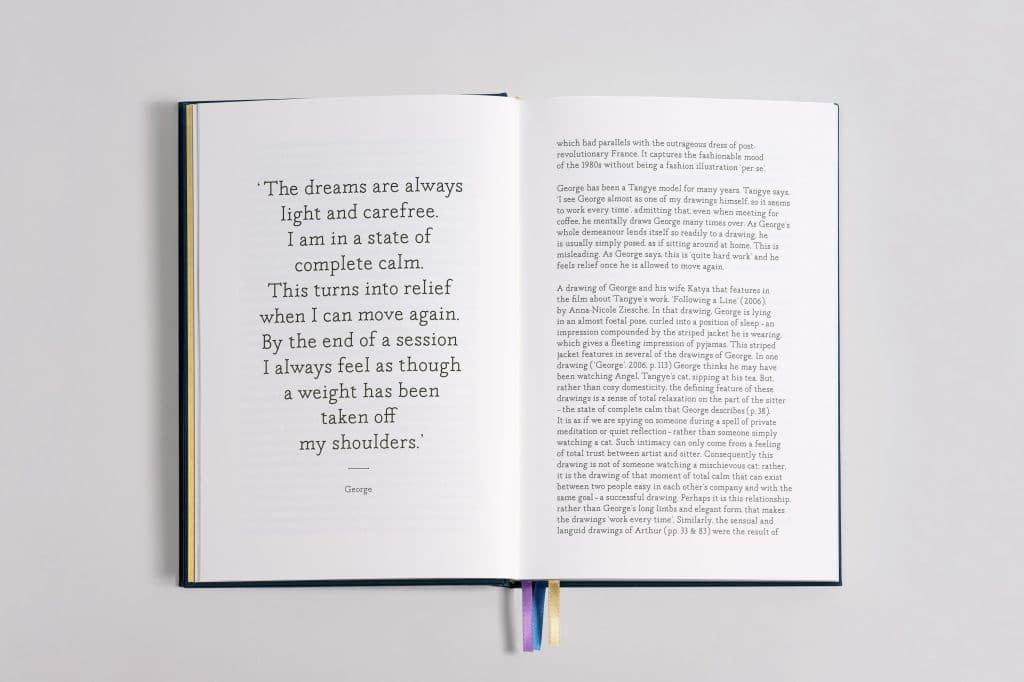 ‘The dreams are always
light and carefree.
I am in a state of
complete calm.
This turns into relief
when I can move again.
By the end of a session
I always feel as though
a weight has been
taken off
my shoulders.’
George
which had parallels with the outrageous dress of post-
revolutionary France. It captures the fashionable mood
of the 1980s without being a fashion illustration ‘per se’.
George has been a Tangye model for many years. Tangye says,
‘I see George almost as one of my drawings himself, so it seems
to work every time’, admitting that, even when meeting for
coffee, he mentally draws George many times over. As George’s
whole demeanour lends itself so readily to a drawing, he
is usually simply posed, as if sitting around at home. This is
misleading. As George says, this is ‘quite hard work’ and he
feels relief once he is allowed to move again.
A drawing of George and his wife Katya that features in
the film about Tangye’s work, ‘Following a Line’ (2006),
by Anna-Nicole Ziesche. In that drawing, George is lying
in an almost foetal pose, curled into a position of sleep – an
impression compounded by the striped jacket he is wearing,
which gives a fleeting impression of pyjamas. This striped
jacket features in several of the drawings of George. In one
drawing (‘George’, 2006, p. 113) George thinks he may have
been watching Angel, Tangye’s cat, sipping at his tea. But,
rather than cosy domesticity, the defining feature of these
drawings is a sense of total relaxation on the part of the sitter
– the state of complete calm that George describes (p. 38).
It is as if we are spying on someone during a spell of private
meditation or quiet reflection – rather than someone simply
watching a cat. Such intimacy can only come from a feeling
of total trust between artist and sitter. Consequently this
drawing is not of someone watching a mischievous cat; rather,
it is the drawing of that moment of total calm that can exist
between two people easy in each other’s company and with the
same goal – a successful drawing. Perhaps it is this relationship,
rather than George’s long limbs and elegant form, that makes
the drawings ‘work every time’. Similarly, the sensual and
languid drawings of Arthur (pp. 33 & 83) were the result of